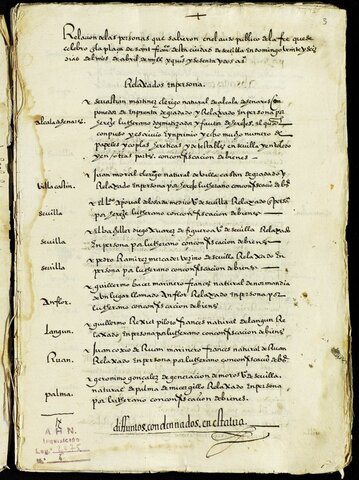 3
Relacion delas personas que salieron enel auto publico dela fee que se
celebro en la plaza de sant franco desta ciudad de sevilla en domingo veinte y seis
dias del mes de abril de mill y quios y sesenta y dos as
Relaxados in persona.
Alcala de henares.
x sevastian martinez clerigo natural de alcala de henares
in persona por
hereje lutherano dogmatizador y fautor de herejes, el qual
conpuso y escrivio y inprimio y echo mucho numero de
papeles y coplas hereticas y detestables en sevilla y en toledo
y en otras partes con confiscacion de bienes.
Villacastin.
x juan moreal clerigo natural de villacastin degradado y
Relaxado in persona por hereje lutherano con confiscacion de bs
sevilla
vo de sevilla Relaxado in perso
por hereje lutherano con confiscacion de bienes
sevilla
x alba diego xuarez de figueroa vo de sevilla Relaxado
in persona por lutherano con confiscacion de bienes
sevilla
x pedro Ramirez mercader vezino de sevilla Relaxado in
persona por lutherano con confiscacion de bienes
Anflor.
x guillermo bacer marinero frances natural de normandia
de un lugar llamado Anflor Relaxado in persona por
lutherano con confiscacion de bienes
Langun.
x guillermo piloto frances natural de langun Re
laxado in persona por lutherano con confiscacion de bienes
Ruan.
x juan coxio de Ruan marinero frances natural de Ruan
Relaxado in persona por lutherano con confiscacion de bs
palma.
x geronimo gonzalez de generacion de moros vo de sevilla
natural de palma de micergillo Relaxado in persona
por lutherano con confiscacion de bienes.
difuntos, condenados, en estatua.
A H N.
Inquisición
Leg.